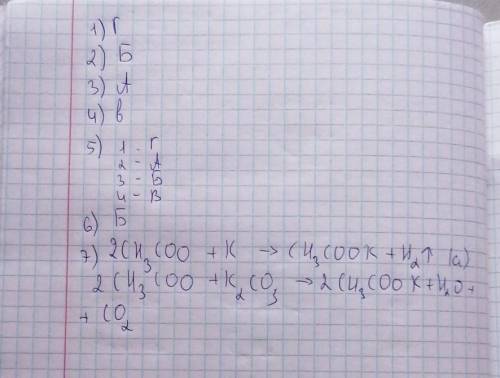 1) Г
2) Б
3) А
4) в
5) 1 - Г
2 - А
3 - Б
4 - В
6) Б
7) 2CH₃COO + K → CH₃COOK + H₂↑ (a)
2CH₃COO + K₂CO₃ → 2CH₃COOK + H₂O +
+ CO₂